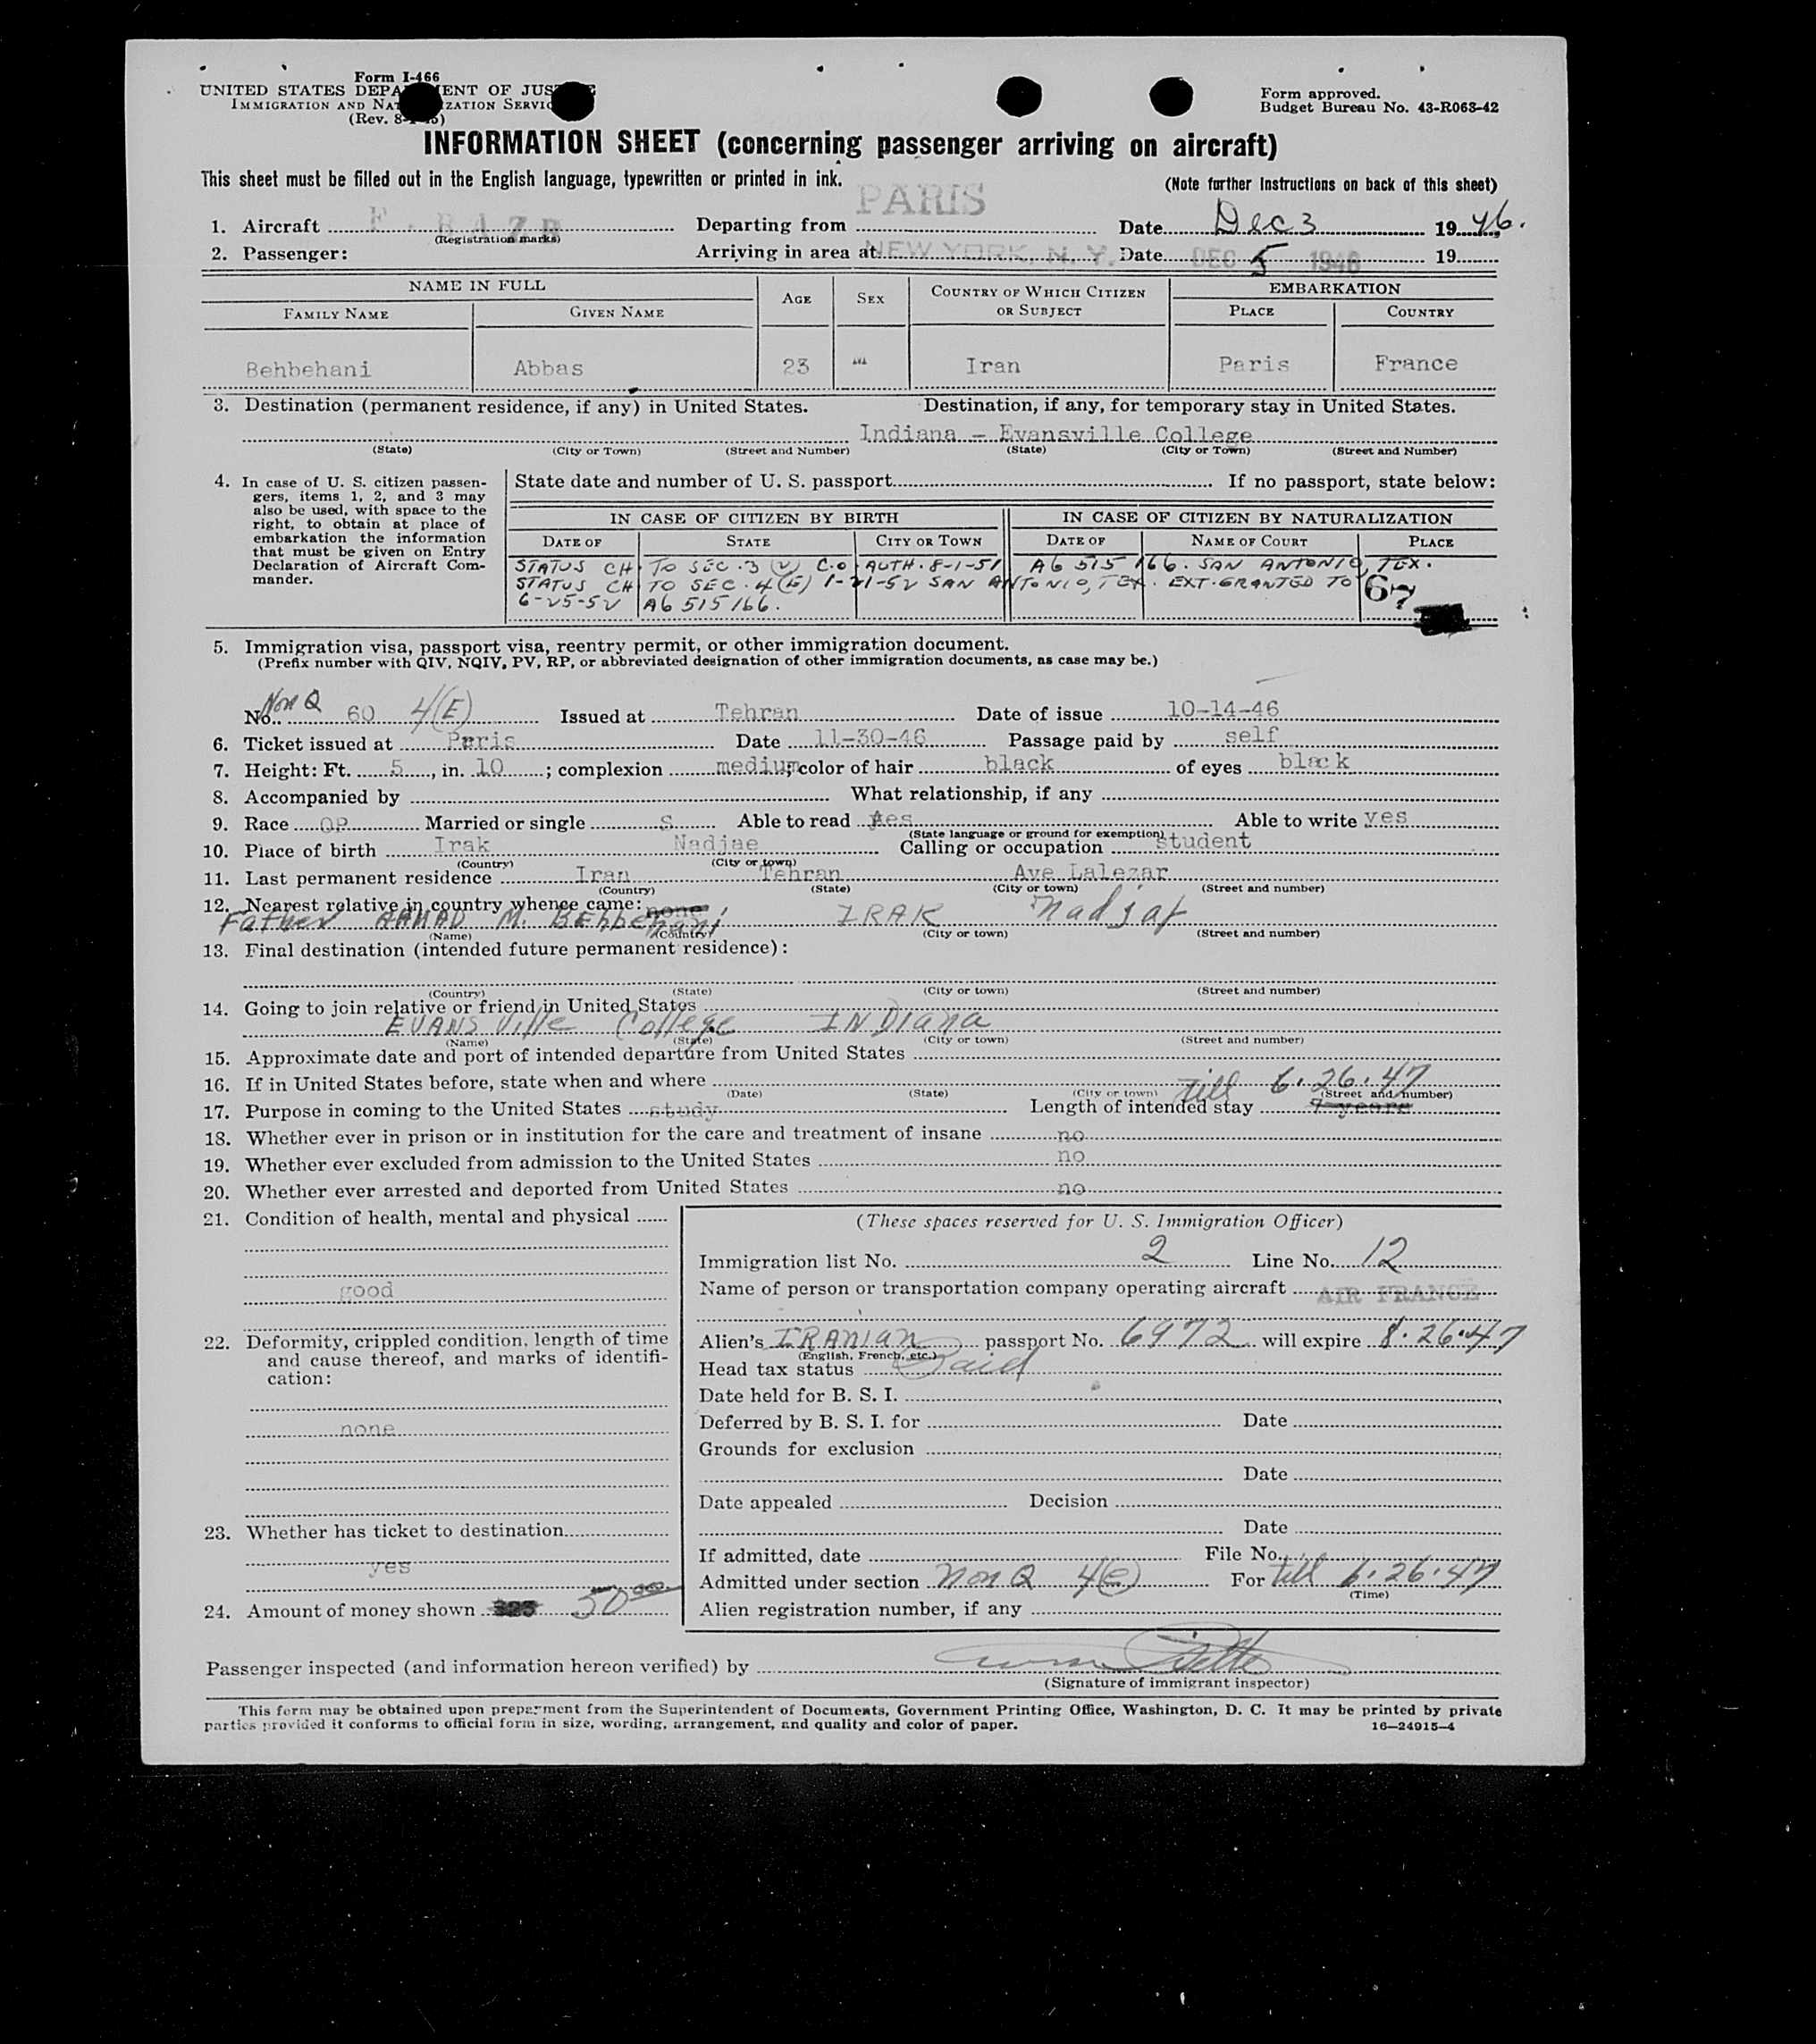 Form I-466
UNITED STATES DEPARTMENT OF JUSTICE
IMMIGRATION AND NATURALIZATION SERVICE
(Rev. 8-1-45)
Form approved.
Budget Bureau No. 43-R063-42
INFORMATION SHEET (concerning passenger arriving on aircraft)
This sheet must be filled out in the English language, typewritten or printed in ink.
(Note further instructions on back of this sheet)
1. Aircraft F. BAZB Departing from PARIS Date Dec 3 1946.
(Registration marks)
2. Passenger: Arriving in area at NEW YORK, N. Y. Date DEC 5 1946 19
NAME IN FULL AGE SEX COUNTRY OF WHICH CITIZEN OR SUBJECT EMBARKATION
FAMILY NAME GIVEN NAME PLACE COUNTRY
Behbehani Abbas 23 M Iran Paris France
3. Destination (permanent residence, if any) in United States. Destination, if any, for temporary stay in United States.
Indiana - Evansville College
(State) (City or Town) (Street and Number) (State) (City or Town) (Street and Number)
4. In case of U. S. citizen passen-
gers, items 1, 2, and 3 may
also be used, with space to the
right, to obtain at place of
embarkation the information
that must be given on Entry
Declaration of Aircraft Com-
mander.
State date and number of U. S. passport If no passport, state below:
IN CASE OF CITIZEN BY BIRTH IN CASE OF CITIZEN BY NATURALIZATION
DATE OF STATE CITY OR TOWN DATE OF NAME OF COURT PLACE
STATUS CH TO SEC. 3 (2) C.O. AUTH. 8-1-51 A6 515 166. SAN ANTONIO, TEX.
STATUS CH TO SEC. 4(E) 1-21-52 SAN ANTONIO, TEX. EXT. GRANTED TO
6-25-52 A6 515166.
67
5. Immigration visa, passport visa, reentry permit, or other immigration document.
(Prefix number with QIV, NQIV, PV, RP, or abbreviated designation of other immigration documents, as case may be.)
No. Non Q 60 4(E) Issued at Tehran Date of issue 10-14-46
6. Ticket issued at Paris Date 11-30-46 Passage paid by self
7. Height: Ft. 5, in. 10; complexion medium; color of hair black of eyes black
8. Accompanied by What relationship, if any
9. Race OP Married or single S Able to read yes Able to write yes
(State language or ground for exemption)
10. Place of birth Irak Nadjae Calling or occupation student
(Country) (City or town)
11. Last permanent residence Iran Tehran Ave Lalezar
(Country) (State) (City or town) (Street and number)
12. Nearest relative in country whence came: none
Father AHMAD M. Behbehani, IRAK Nadjaf
(Name) (Country) (City or town) (Street and number)
13. Final destination (intended future permanent residence):
(Country) (State) (City or town) (Street and number)
14. Going to join relative or friend in United States
EVANSVille College INDiana
(Name) (State) (City or town) (Street and number)
15. Approximate date and port of intended departure from United States
16. If in United States before, state when and where
(Date) (State) (City or town) (Street and number)
till 6.26.47
17. Purpose in coming to the United States study Length of intended stay years
18. Whether ever in prison or in institution for the care and treatment of insane no
19. Whether ever excluded from admission to the United States no
20. Whether ever arrested and deported from United States no
21. Condition of health, mental and physical
good
22. Deformity, crippled condition, length of time
and cause thereof, and marks of identifi-
cation:
none
23. Whether has ticket to destination
yes
24. Amount of money shown 50.00
(These spaces reserved for U. S. Immigration Officer)
Immigration list No. 2 Line No. 12
Name of person or transportation company operating aircraft AIR FRANCE
Alien's IRANIAN passport No. 6972 will expire 8.26.47
(English, French, etc.)
Head tax status Paid
Date held for B. S. I.
Deferred by B. S. I. for Date
Grounds for exclusion
Date
Date appealed Decision
Date
If admitted, date File No.
Admitted under section Non Q 4(E) For till 6.26.47
(Time)
Alien registration number, if any
Passenger inspected (and information hereon verified) by
(Signature of immigrant inspector)
This form may be obtained upon prepayment from the Superintendent of Documents, Government Printing Office, Washington, D. C. It may be printed by private
parties provided it conforms to official form in size, wording, arrangement, and quality and color of paper. 16—24915-4